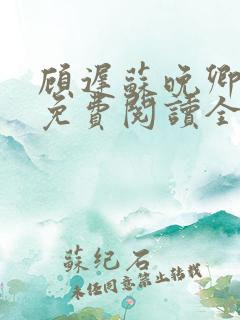 顧遲蘇晚卿
免費閱讀全
蘇紀石
未经同意禁止转载